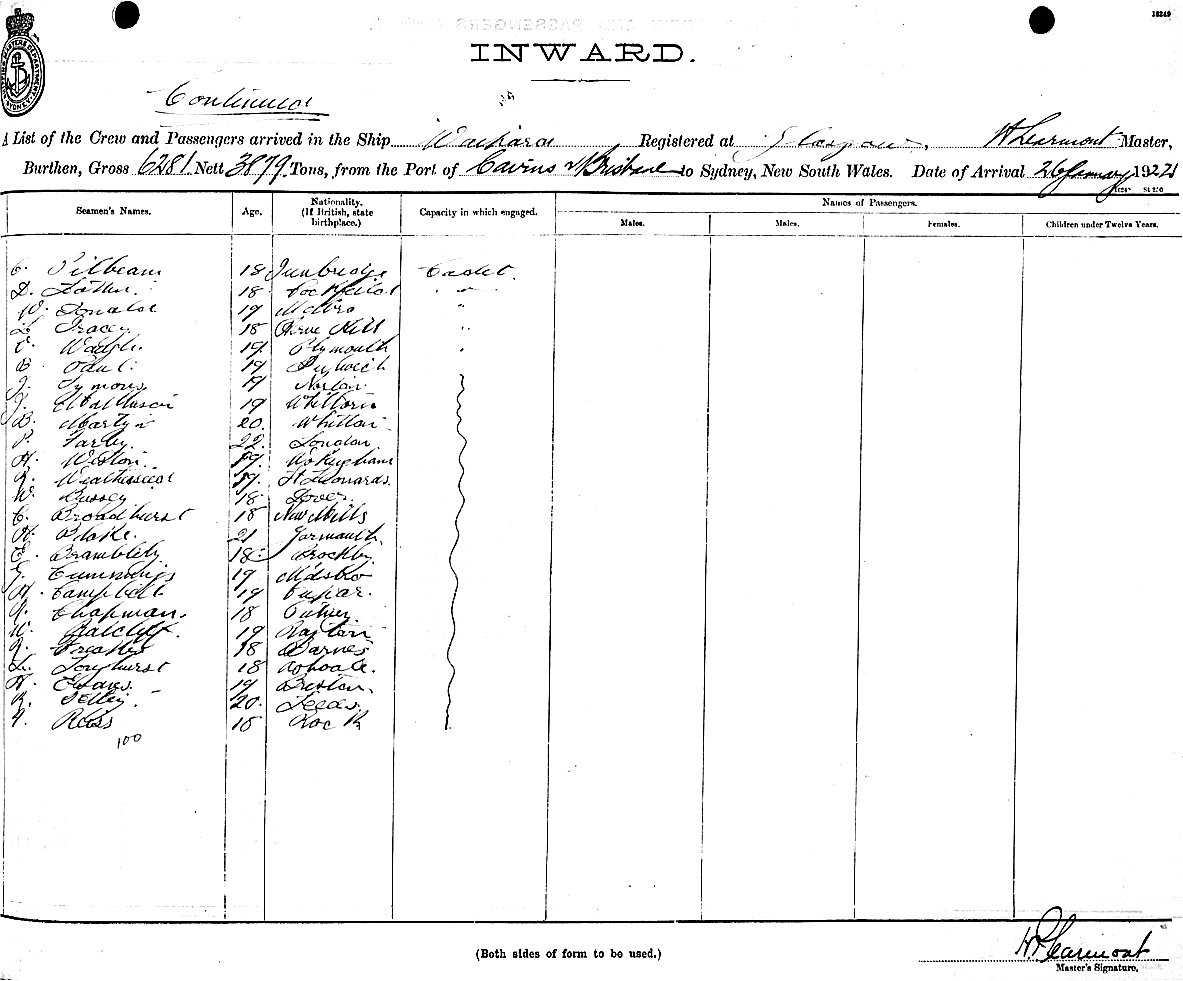 16249
INWARD.
Continued
A List of the Crew and Passengers arrived in the Ship Waihara Registered at Glasgow, H Learmont Master,
Burthen, Gross 6281 Nett 3879 Tons, from the Port of Cairns & Brisbane to Sydney, New South Wales. Date of Arrival 26 January 1922
Seamen's Names. Age. Nationality. (If British, state birthplace.) Capacity in which engaged. Names of Passengers.
Males. Males. Females. Children under Twelve Years.
C. Pilbeam 18 Tunbridge Cadet.
D. 18
W. Donald 19 M'dbro "
Tracey 18 Hill "
Waugh 19 Plymouth "
B. Paul 19
J. Symons 19 Norton
J. Mathieson 19 Whithorn
B. Martyn 20. Whitton
P. Farby. 22. London.
H. Weston. 19. Wokingham
R. 19. St Leonards.
W. Bussey 18 Dover.
C. Broadhurst 18 New Mills
H. Blake. 21 Yarmouth.
E. Brambleby 18 Brockley.
G. Cummings 19 M'dsbro
A. Campbell 19 Cupar.
A. Chapman. 18 Putney.
W. Ratcliff. 19
R. Freakes 18 Barnes
L. Longhurst 18
H. Evans. 19 Brixton.
R. Tetley. 20. Leeds.
Reiss 18 Rock
100
(Both sides of form to be used.)
H Learmont
Master's Signature.